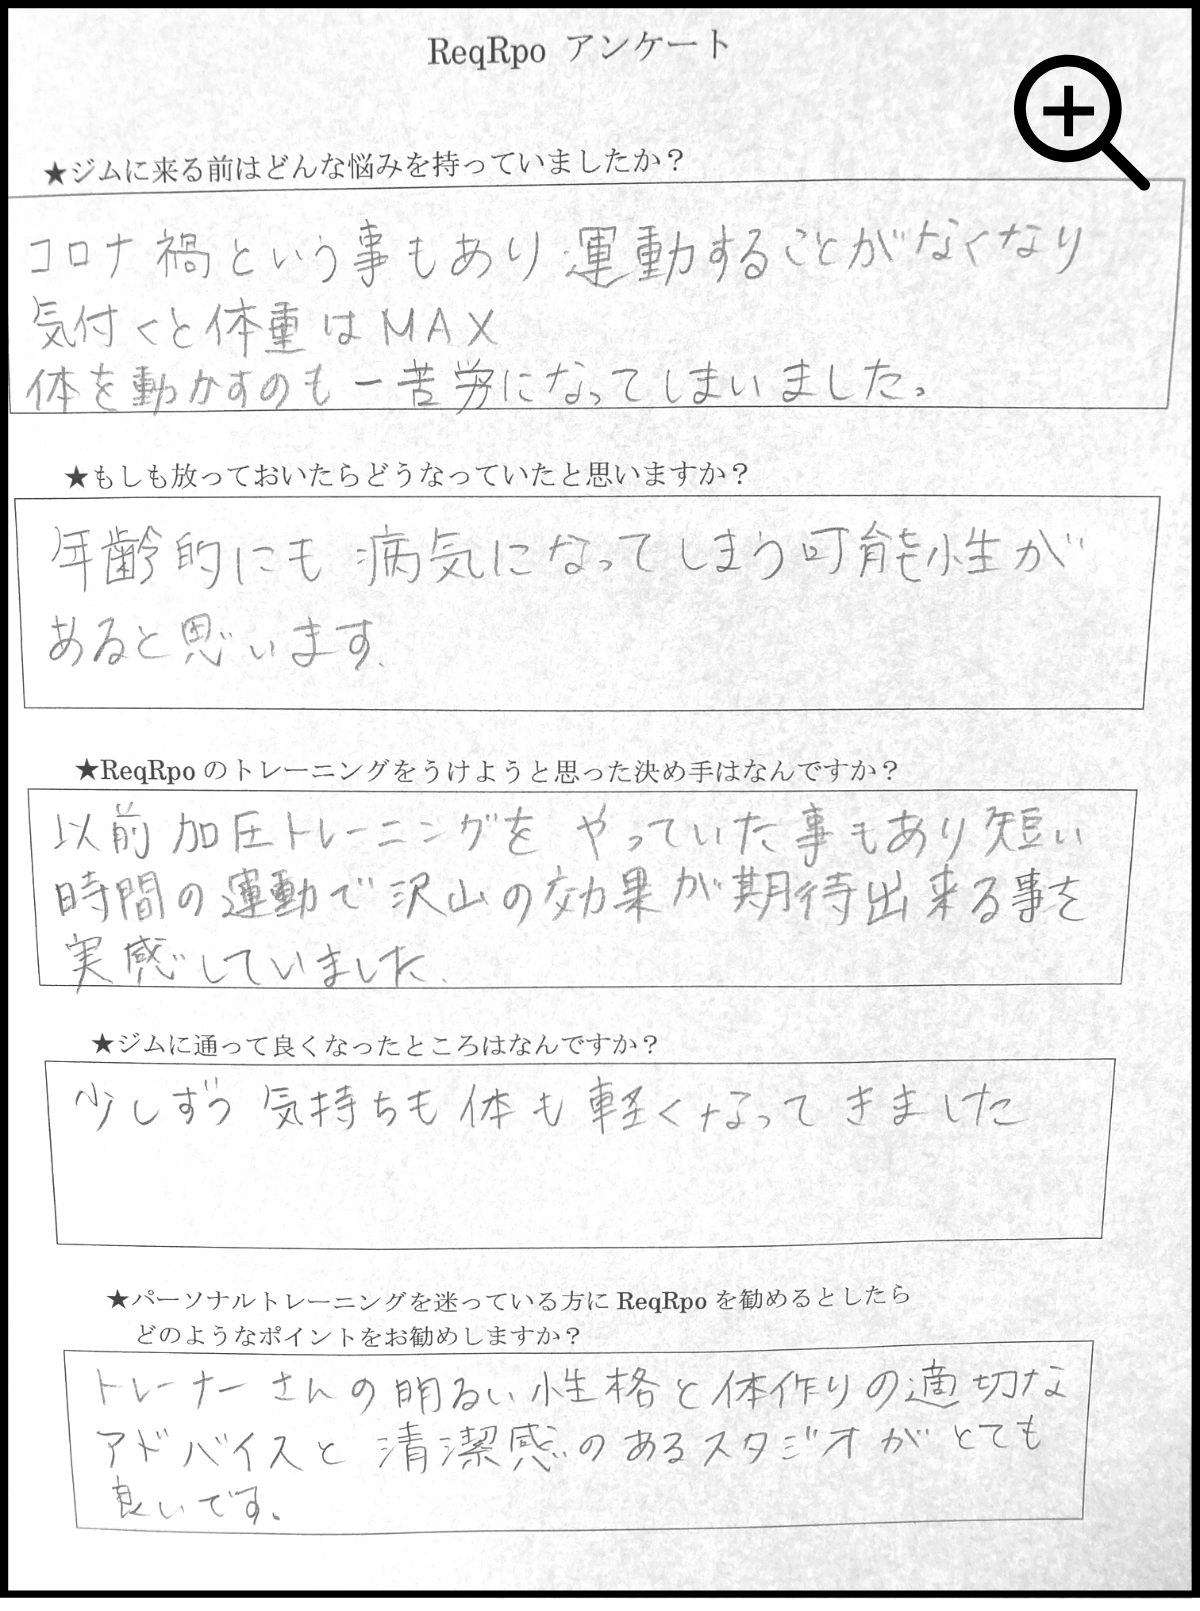 ReqRpo アンケート
★ジムに来る前はどんな悩みを持っていましたか？
コロナ禍という事もあり運動することがなくなり
気付くと体重はMAX
体を動かすのも一苦労になってしまいました。
★もしも放っておいたらどうなっていたと思いますか？
年齢的にも病気になってしまう可能性が
あると思います.
★ReqRpoのトレーニングをうけようと思った決め手はなんですか？
以前加圧トレーニングをやっていた事もあり短い
時間の運動で沢山の効果が期待出来る事を
実感していました.
★ジムに通って良くなったところはなんですか？
少しずつ気持ちも体も軽くなってきました
★パーソナルトレーニングを迷っている方にReqRpoを勧めるとしたら
どのようなポイントをお勧めしますか？
トレーナーさんの明るい性格と体作りの適切な
アドバイスと清潔感のあるスタジオがとても
良いです.